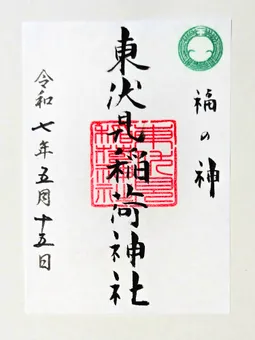 福の神
東伏見稲荷神社
令和七年五月十五日